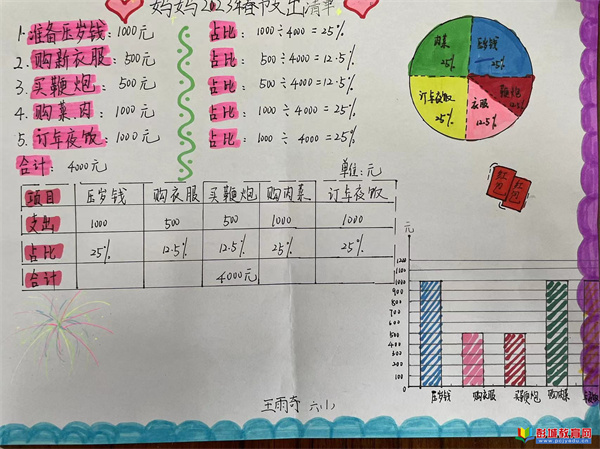 妈妈2023年春节支出清单
1. 准备压岁钱：1000元 占比：1000÷4000=25%
2. 购新衣服：500元 占比：500÷4000=12.5%
3. 买鞭炮：500元 占比：500÷4000=12.5%
4. 购菜肉：1000元 占比：1000÷4000=25%
5. 订年夜饭：1000元 占比：1000÷4000=25%
合计：4000元
单位：元
项目 压岁钱 购衣服 买鞭炮 购肉菜 订年夜饭
支出 1000 500 500 1000 1000
占比 25% 12.5% 12.5% 25% 25%
合计 4000元
肉菜 25%
压岁钱 25%
订年夜饭 25%
衣服 12.5%
鞭炮 12.5%
元
1200
1100
1000
900
800
700
600
500
400
300
200
100
0
压岁钱 购衣服 买鞭炮 购肉菜
王雨奇 六(1)
彭城教育网
www.pcjyedu.cn